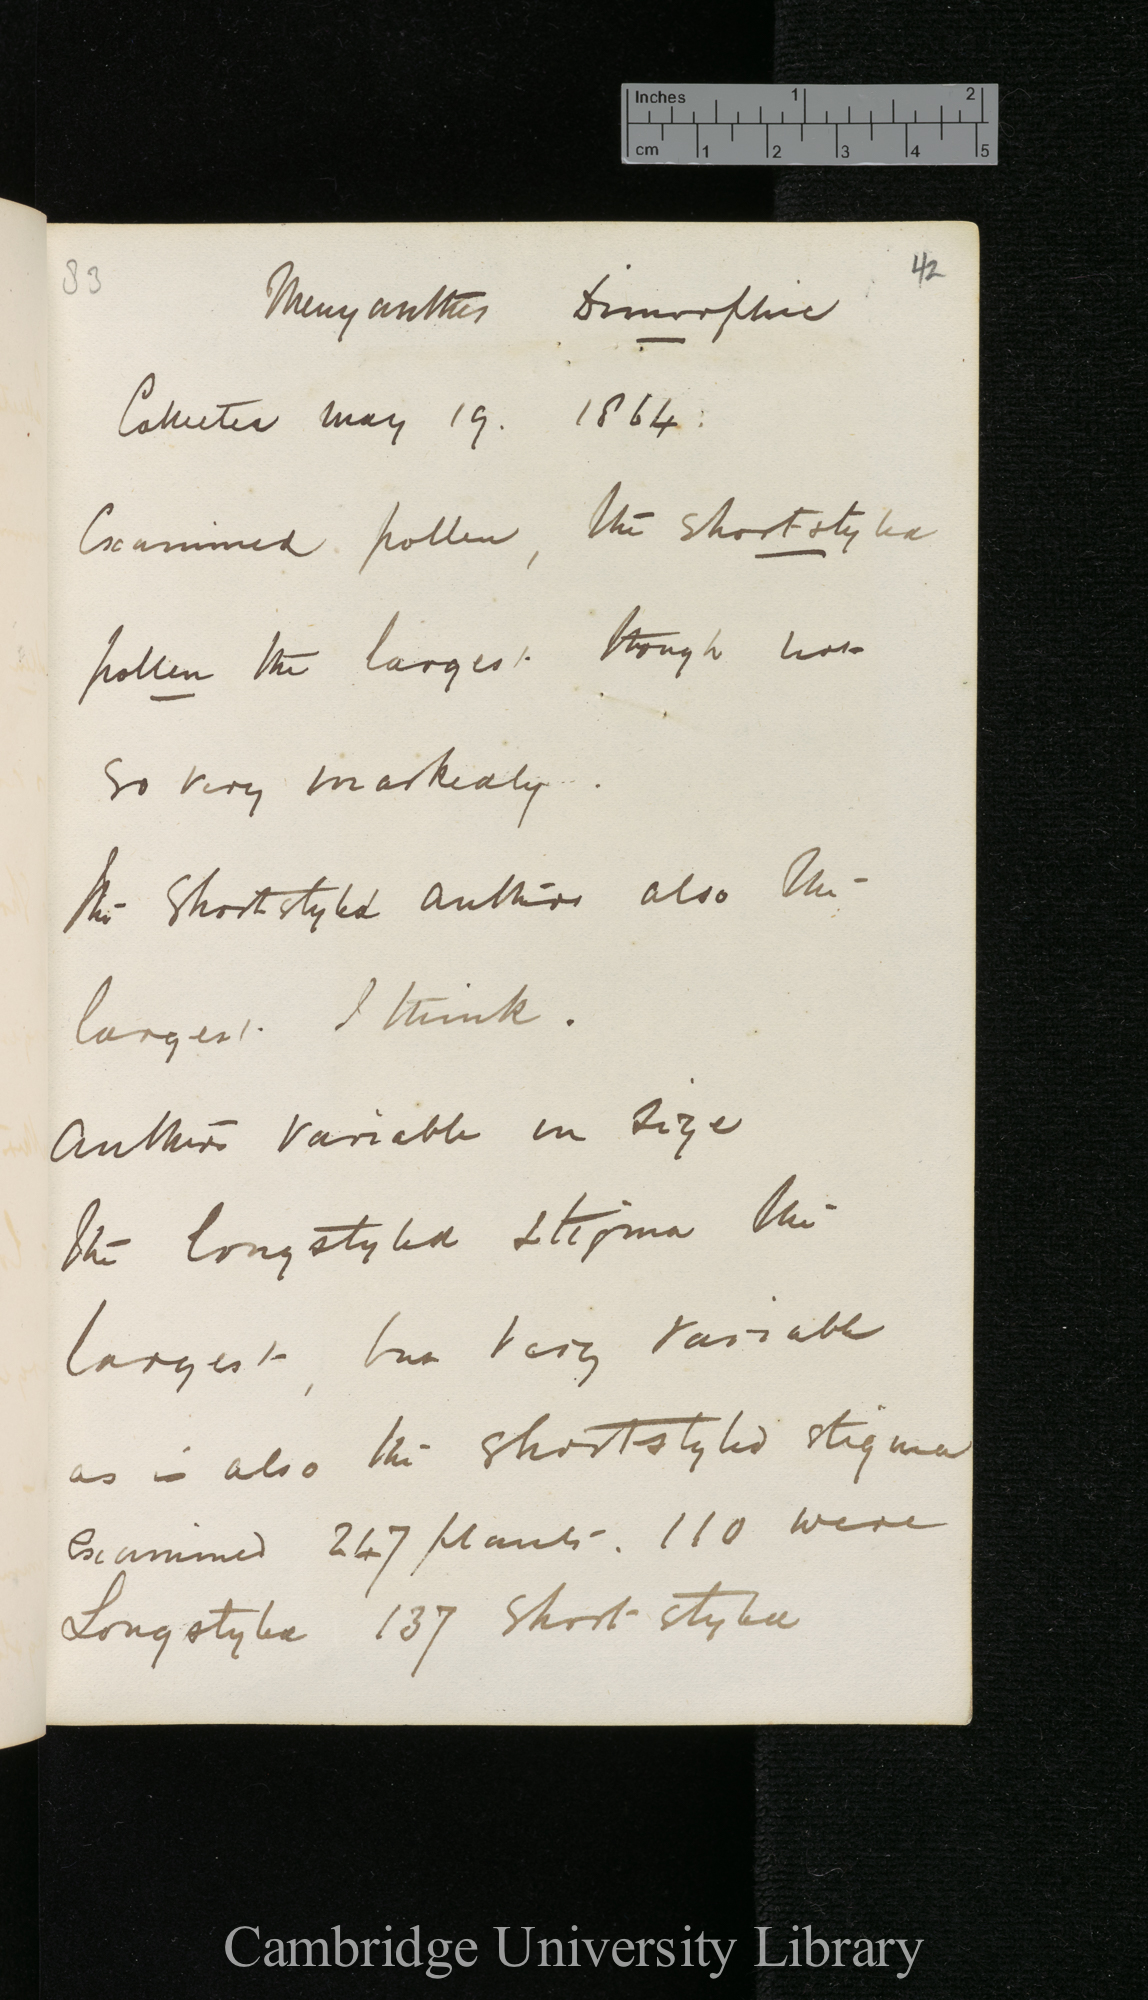 Inches 1 2
cm 1 2 3 4 5
83 42
Menyanthes Dimorphic
Collected May 19. 1864.
Examined pollen, the shortstyled
pollen the largest though not
so very markedly.
The shortstyled anthers also the
largest I think.
Anthers variable in size
The longstyled stigma the
largest, but very variable
as is also the shortstyled stigma
Examined 247 plants. 110 were
Longstyled 137 Short styled
Cambridge University Library